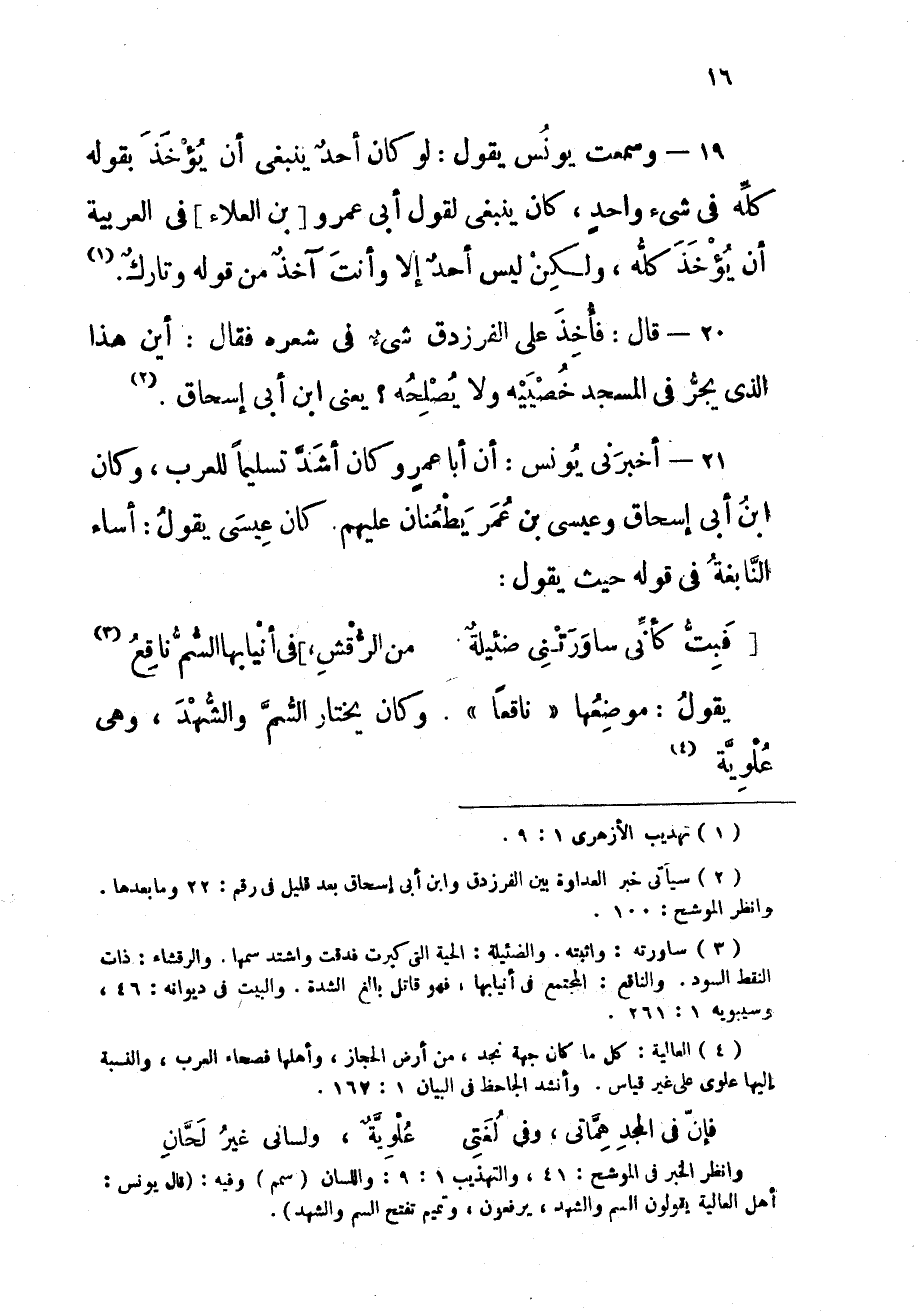 ١٦
١٩ — وسمعت يونُس يقول : لو كان أحدٌ ينبغى أن يُؤْخَذَ بقوله
كلِّه فى شىء واحدٍ ، كان ينبغى لقول أبى عمرو [ بن العلاء ] فى العربية
أن يُؤْخَذَ كلُّه ، ولـكِنْ ليس أحدٌ إلا وأنتَ آخذٌ من قوله وتاركٌ . (١)
٢٠ — قال : فأُخِذَ على الفرزدق شىءٌ فى شعره فقال : أين هذا
الذى يجرُّ فى المسجد خُصْيَيْه ولا يُصْلِحُه ؟ يعنى ابن أبى إسحاق . (٢)
٢١ — أخبرَنى يُونس : أن أبا عمرٍو كان أشَدَّ تسليماً للعرب ، وكان
ابنُ أبى إسحاق وعيسى بن عُمَر يَطْعُنان عليهم . كان عِيسَى يقولُ : أساء
النَّابغةُ فى قوله حيث يقول :
[ فَبِتُّ كأنِّى ساوَرَتْـنِى ضئيلةٌ من الرُّقْشِ ،] فى أنْيابها السُّمُّ ناقِعُ (٣)
يقولُ : موضِعُها « ناقعًا » . وكان يختار السُّمَّ والشُّهْدَ ، وهى
عُلْوِيَّة (٤)
( ١ ) تهذيب الأزهرى ١ : ٩ .
( ٢ ) سيأتى خبر العداوة بين الفرزدق وابن أبى إسحاق بعد قليل فى رقم : ٢٢ ومابعدها .
وانظر الموشح : ١٠٠ .
( ٣ ) ساورته : واثبته . والضئيلة : الحية التى كبرت فدقت واشتد سمها . والرقشاء : ذات
النقط السود . والناقع : المجتمع فى أنيابها ، فهو قاتل بالغ الشدة . والبيت فى ديوانه : ٤٦ ،
وسيبويه ١ : ٢٦١ .
( ٤ ) العالية : كل ما كان جهة نجد ، من أرض الحجاز ، وأهلها فصحاء العرب ، والنسبة
إليها علوى على غير قياس . وأنشد الجاحظ فى البيان ١ : ١٦٧ .
فإنّ فى المجدِ هِمَّاتى ، وفى لُغَتِى عُلْوِيَّةٌ ، ولسانى غيرُ لَحَّانِ
وانظر الخبر فى الموشح : ٤١ ، والتهذيب ١ : ٩ : واللسان ( سمم ) وفيه : (قال يونس :
أهل العالية يقولون السم والشهد ، يرفعون ، وتميم تفتح السم والشهد) .